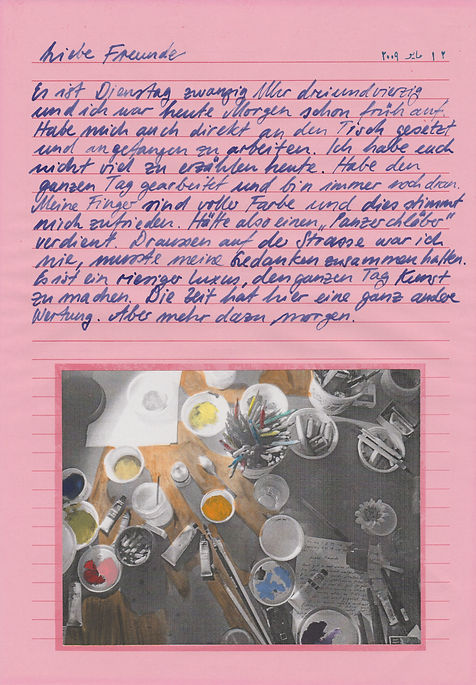 Liebe Freunde
١٢ مايو ٢٠٠٩
Es ist Dienstag zwanzig Uhr dreiundvierzig
und ich war heute Morgen schon früh auf.
Habe mich auch direkt an den Tisch gesetzt
und angefangen zu arbeiten. Ich habe euch
nicht viel zu erzählen heute. Habe den
ganzen Tag gearbeitet und bin immer noch dran.
Meine Finger sind voller Farbe und dies stimmt
mich zufrieden. Hätte also einen „Panzerchläber"
verdient. Draussen auf der Strasse war ich
nie, musste meine Gedanken zusammen halten.
Es ist ein riesiger Luxus, den ganzen Tag Kunst
zu machen. Die Zeit hat hier eine ganz andere
Wertung. Aber mehr dazu morgen.